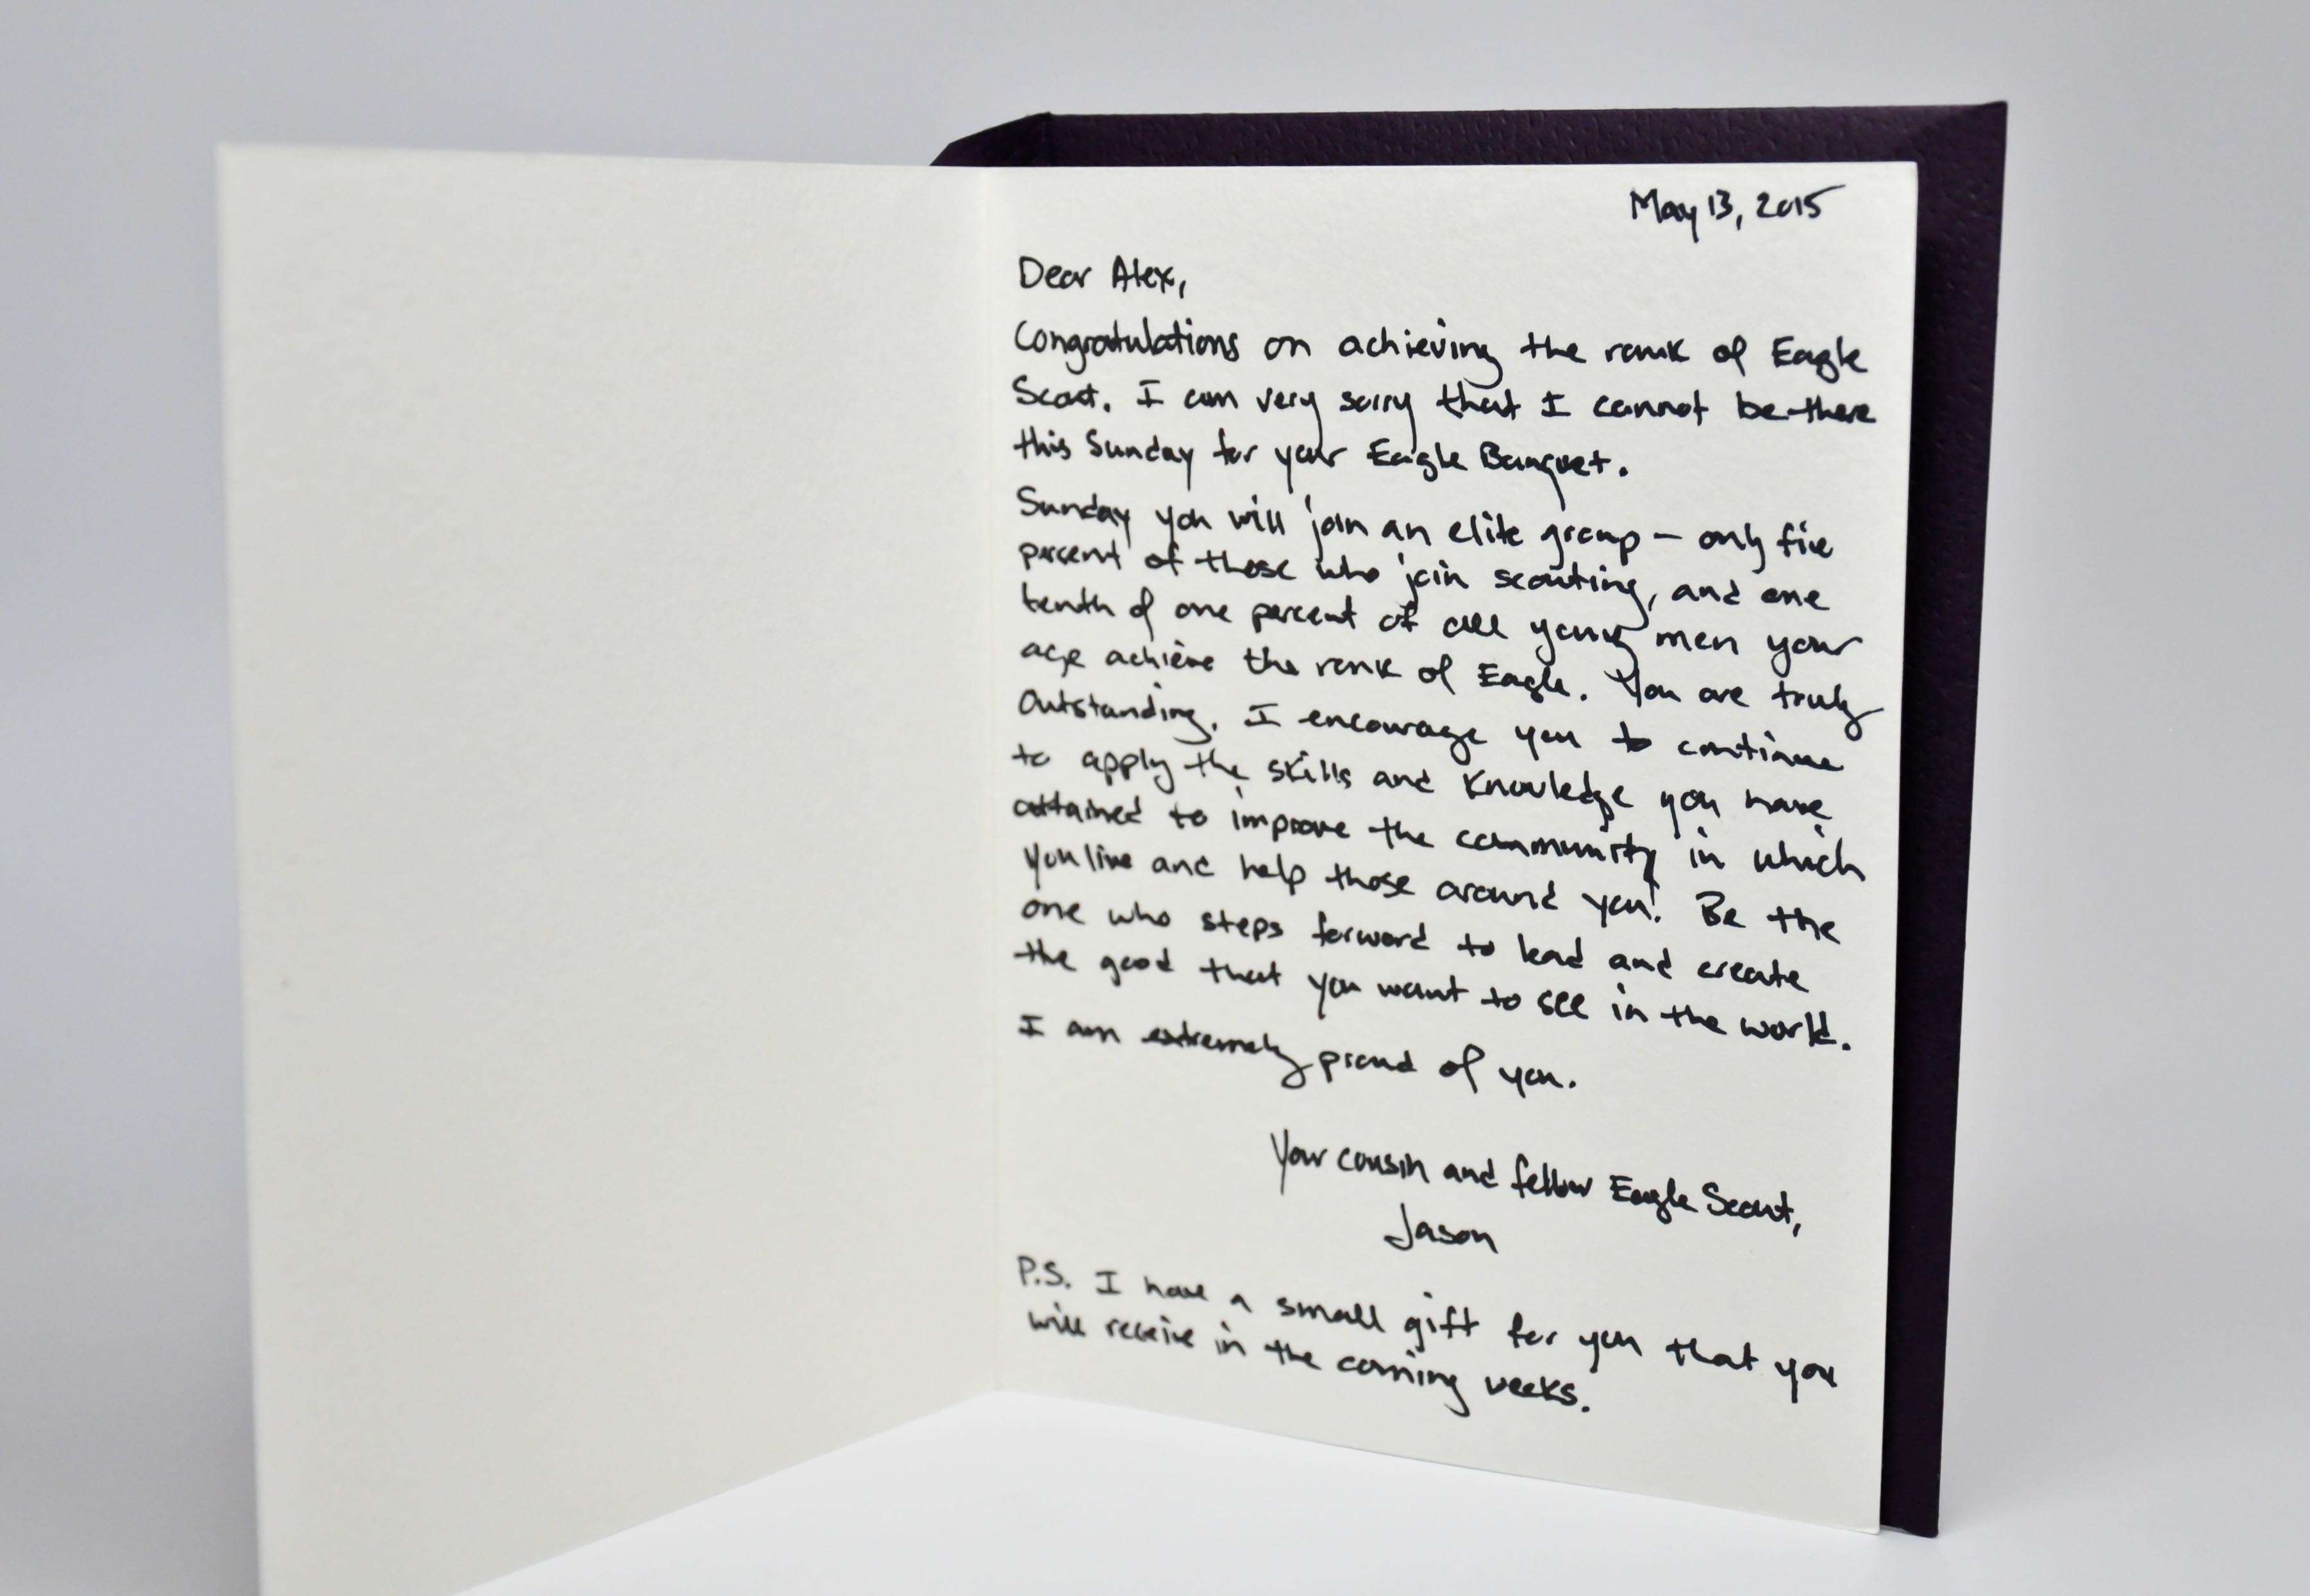 May 13, 2015
Dear Alex,
Congratulations on achieving the rank of Eagle
Scout. I am very sorry that I cannot be there
this Sunday for your Eagle Banquet.
Sunday you will join an elite group – only five
percent of those who join scouting, and one
tenth of one percent of all young men your
age achieve the rank of Eagle. You are truly
Outstanding. I encourage you to continue
to apply the skills and knowledge you have
attained to improve the community in which
you live and help those around you! Be the
one who steps forward to lead and create
the good that you want to see in the world.
I am extremely proud of you.
Your cousin and fellow Eagle Scout,
Jason
P.S. I have a small gift for you that you
will receive in the coming weeks.